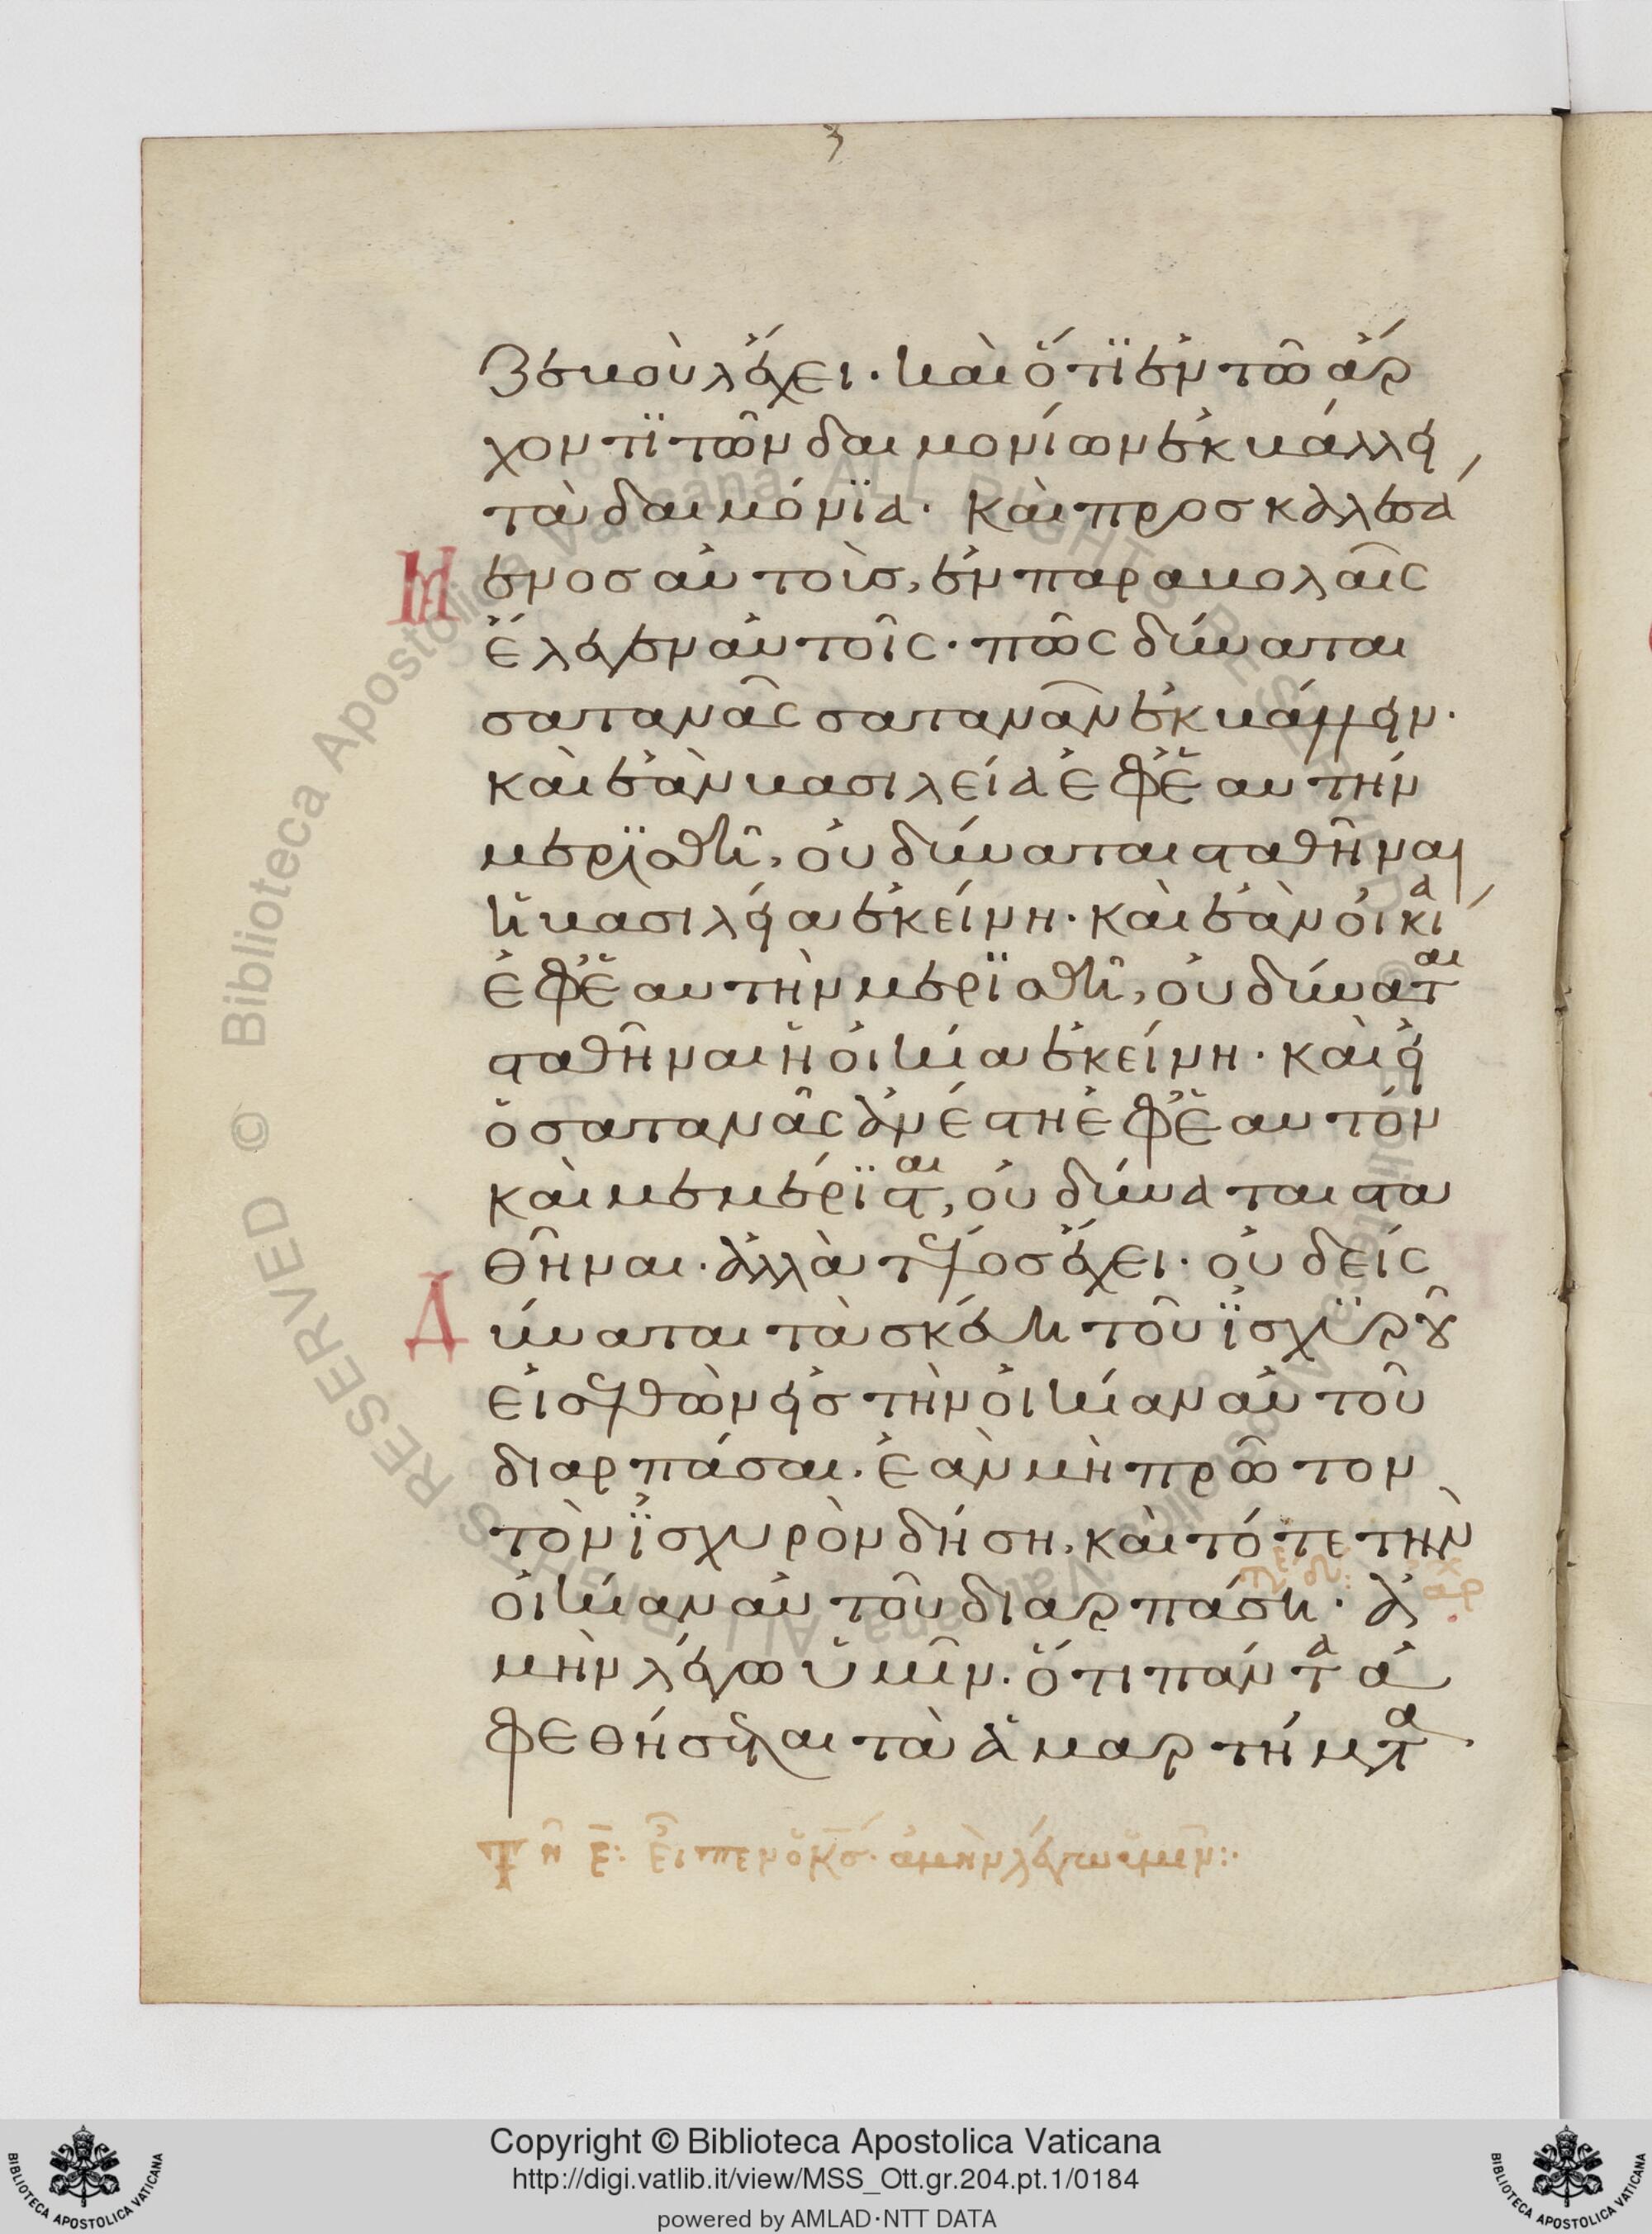 ζεβουλ ἔχει· καὶ ὅτϊ ἐν τῶ ἄρ
χοντϊ τῶν δαιμονίων ἐκβάλλει,
τὰ δαιμόνϊα· καὶ προσκαλεσά
μενοσ αὐτοὺσ, ἐν παραβολαῖς
ἔλεγεν αὐτοῖς· πῶς δύναται
σατανᾶς σατανᾶν ἐκβάλλειν·
καὶ ἐὰν βασιλεία ἐφ' ἑαυτὴν
μερϊσθῆ, οὐ δύναται σταθῆναι
ἡ βασιλεία ἐκείνη· καὶ ἐὰν οἰκία
ἐφ' ἑαυτὴν μερϊσθῆ, οὐ δύναται
σταθῆναι ἡ οἰκία ἐκείνη· καὶ εἰ
ὁ σατανᾶς ἀνέστη ἐφ' ἑαυτὸν
καὶ μεμέρϊσται, οὐ δύναται στα
θῆναι· ἀλλὰ τέλοσ ἔχει· οὐδείς
Δύναται τὰ σκεύη τοῦ ἰσχϋροῦ
εἰσελθὼν εἰσ τὴν οἰκίαν αὐτοῦ
διαρπάσαι· ἐὰν μὴ πρῶτον
τὸν ἰσχυρὸν δήση, καὶ τότε τὴν
οἰκίαν αὐτοῦ διαρπάση· ἀ
τέλος
ἀρχ
μὴν λέγω ὑμῖν· ὅτι πάντα ἀ
φεθήσεται τὰ ἁμαρτήματα
εἶπεν ὁ κσ· ἀμὴν λέγω ὑμῖν:·
Copyright © Biblioteca Apostolica Vaticana
http://digi.vatlib.it/view/MSS_Ott.gr.204.pt.1/0184
powered by AMLAD·NTT DATA
BIBLIOTECA APOSTOLICA VATICANA
BIBLIOTECA APOSTOLICA VATICANA
© Biblioteca Apostolica Vaticana ALL RIGHTS RESERVED